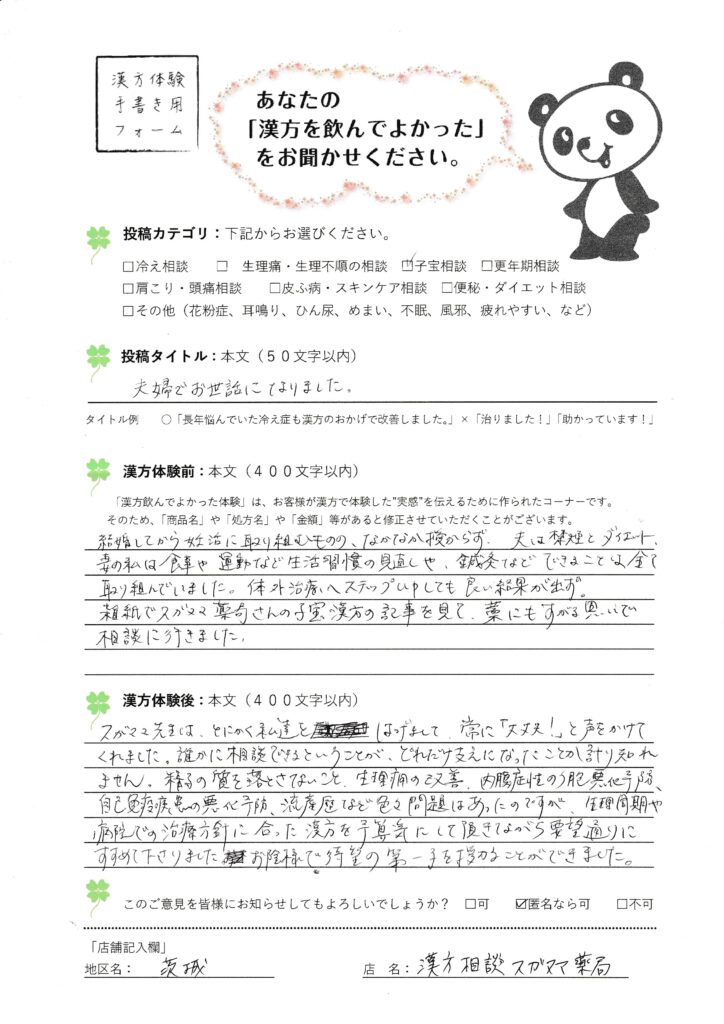 漢方体験
手書き用
フォーム
あなたの
「漢方を飲んでよかった」
をお聞かせください。
投稿カテゴリ：下記からお選びください。
□冷え相談 □ 生理痛・生理不順の相談 ☑子宝相談 □更年期相談
□肩こり・頭痛相談 □皮ふ病・スキンケア相談 □便秘・ダイエット相談
□その他（花粉症、耳鳴り、ひん尿、めまい、不眠、風邪、疲れやすい、など）
投稿タイトル：本文（５０文字以内）
夫婦でお世話になりました。
タイトル例 ○「長年悩んでいた冷え症も漢方のおかげで改善しました。」×「治りました！」「助かっています！」
漢方体験前：本文（４００文字以内）
「漢方飲んでよかった体験」は、お客様が漢方で体験した"実感"を伝えるために作られたコーナーです。
そのため、「商品名」や「処方名」や「金額」等があると修正させていただくことがございます。
結婚してから妊活に取り組むものの、なかなか授からず。夫は禁煙とダイエット、
妻の私は食事や運動など生活習慣の見直しや、鍼灸など できることは全て
取り組んでいました。体外治療へステップUPしても良い結果が出ず。
雑紙でスガヌマ薬局さんの子宝漢方の記事を見て、藁にもすがる思いで
相談に行きました。
漢方体験後：本文（４００文字以内）
スガヌマ先生は、とにかく私達を はげまして、常に「大丈夫！」と声をかけて
くれました。誰かに相談できるということが、どれだけ支えになったことか計り知れ
ません。精子の質を落とさないこと、生理痛の改善、内膜症性のう胞悪化予防、
自己免疫疾患の悪化予防、流産歴など色々問題はあったのですが、生理周期や
病院での治療方針に合った漢方を予算等にして頂きながら要望通りに
すすめて下さりました お陰様で待望の第一子を授かることができました。
このご意見を皆様にお知らせしてもよろしいでしょうか？ □可 ☑匿名なら可 □不可
「店舗記入欄」
地区名： 茨城 店 名：漢方相談スガヌマ薬局